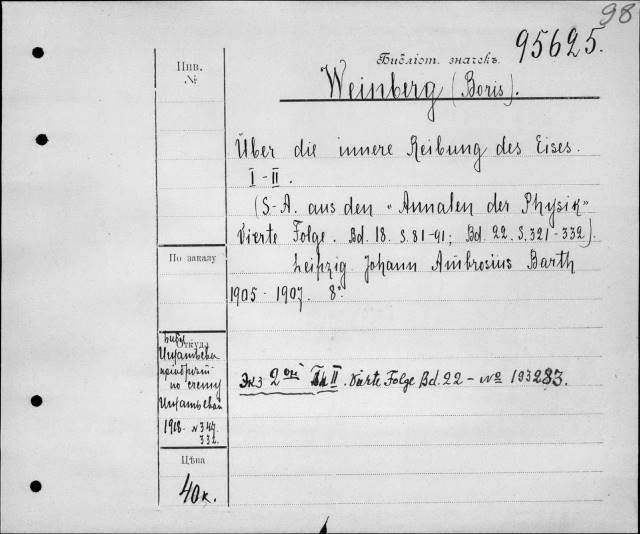 98
95625.
Инв.
№
Библіот. значекъ.
Weinberg (Boris).
Über die innere Reibung des Eises.
I-II.
(S.-A. aus den "Annalen der Physik"
Vierte Folge. Bd. 18. S. 81-91; Bd. 22. S. 321-332).
Leipzig. Johann Ambrosius Barth
1905-1907. 8°.
По заказу
Откуда
по счету
1918. № 347.
332.
Экз 2ой Bd II. Vierte Folge Bd. 22 - № 193283.
Цѣна
40 к.